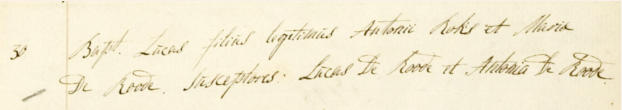 30 Bapt. Lucas filius legitimus Antonii Roks et Maria
De Roode. Susceptores. Lucas De Roode et Antonia De Roode.